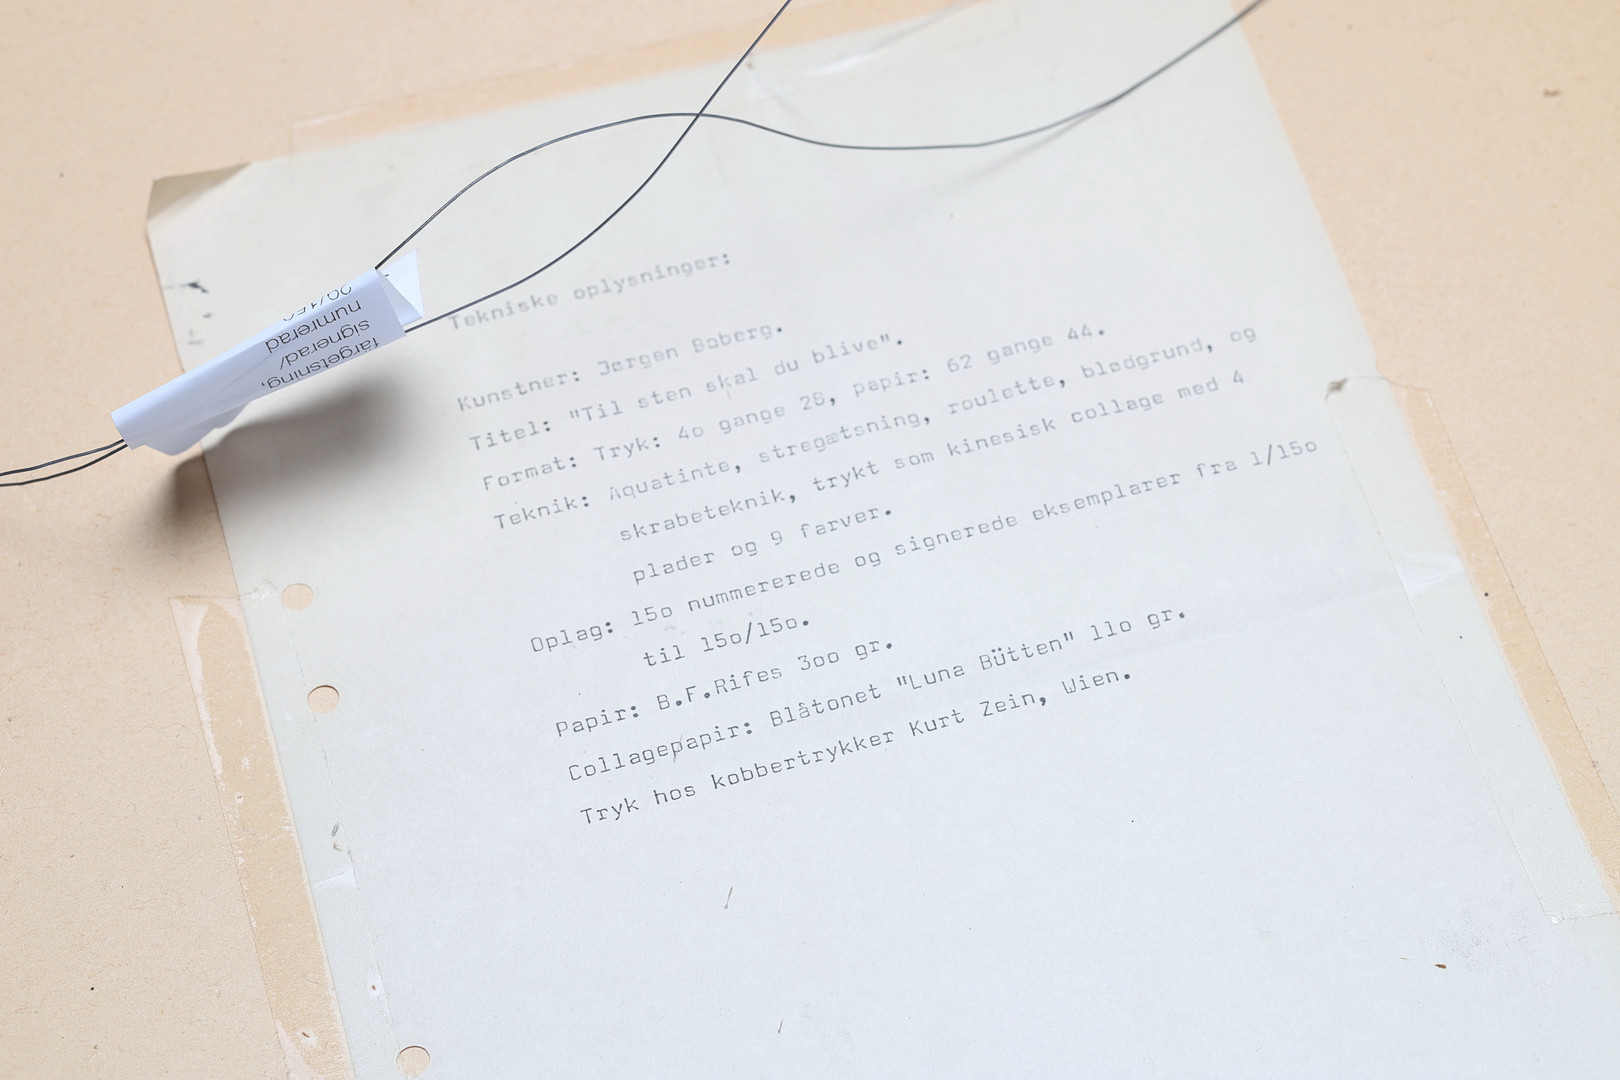 Tekniske oplysninger:
Kunstner: Jørgen Boberg.
Titel: "Til sten skal du blive".
Format: Tryk: 4o gange 28, papir: 62 gange 44.
Teknik: Aquatinte, stregætsning, roulette, blødgrund, og
skrabeteknik, trykt som kinesisk collage med 4
plader og 9 farver.
Oplag: 15o nummererede og signerede eksemplarer fra 1/15o
til 15o/15o.
Papir: B.F.Rifes 3oo gr.
Collagepapir: Blåtonet "Luna Bütten" 11o gr.
Tryk hos kobbertrykker Kurt Zein, Wien.
färgetsning,
signerad/
numrerad